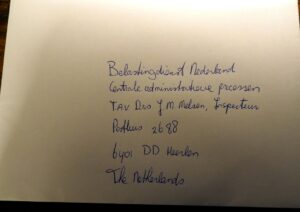 Belastingdienst Nederland
Centrale administratieve processen
TAV Drs J M Melsen, Inspecteur
Postbus 2688
6401 DD Heerlen
The Netherlands